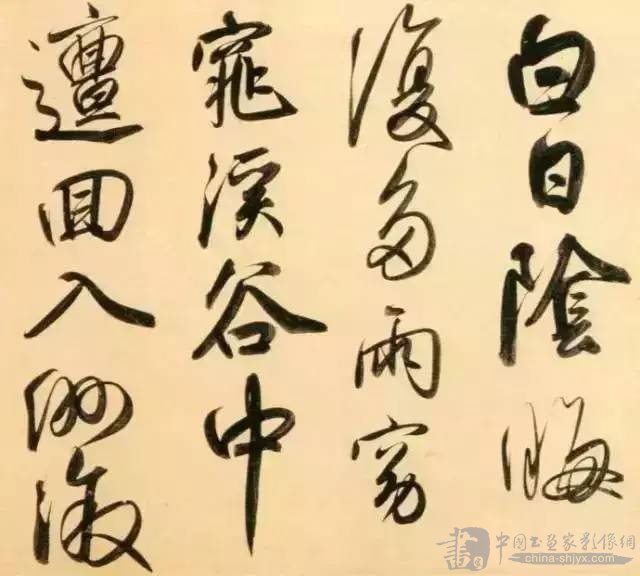 白日陰晦
復多雨窈
窕溪谷中
邅回入洲漵
書
中国书画家影像網
china-shjyx.com